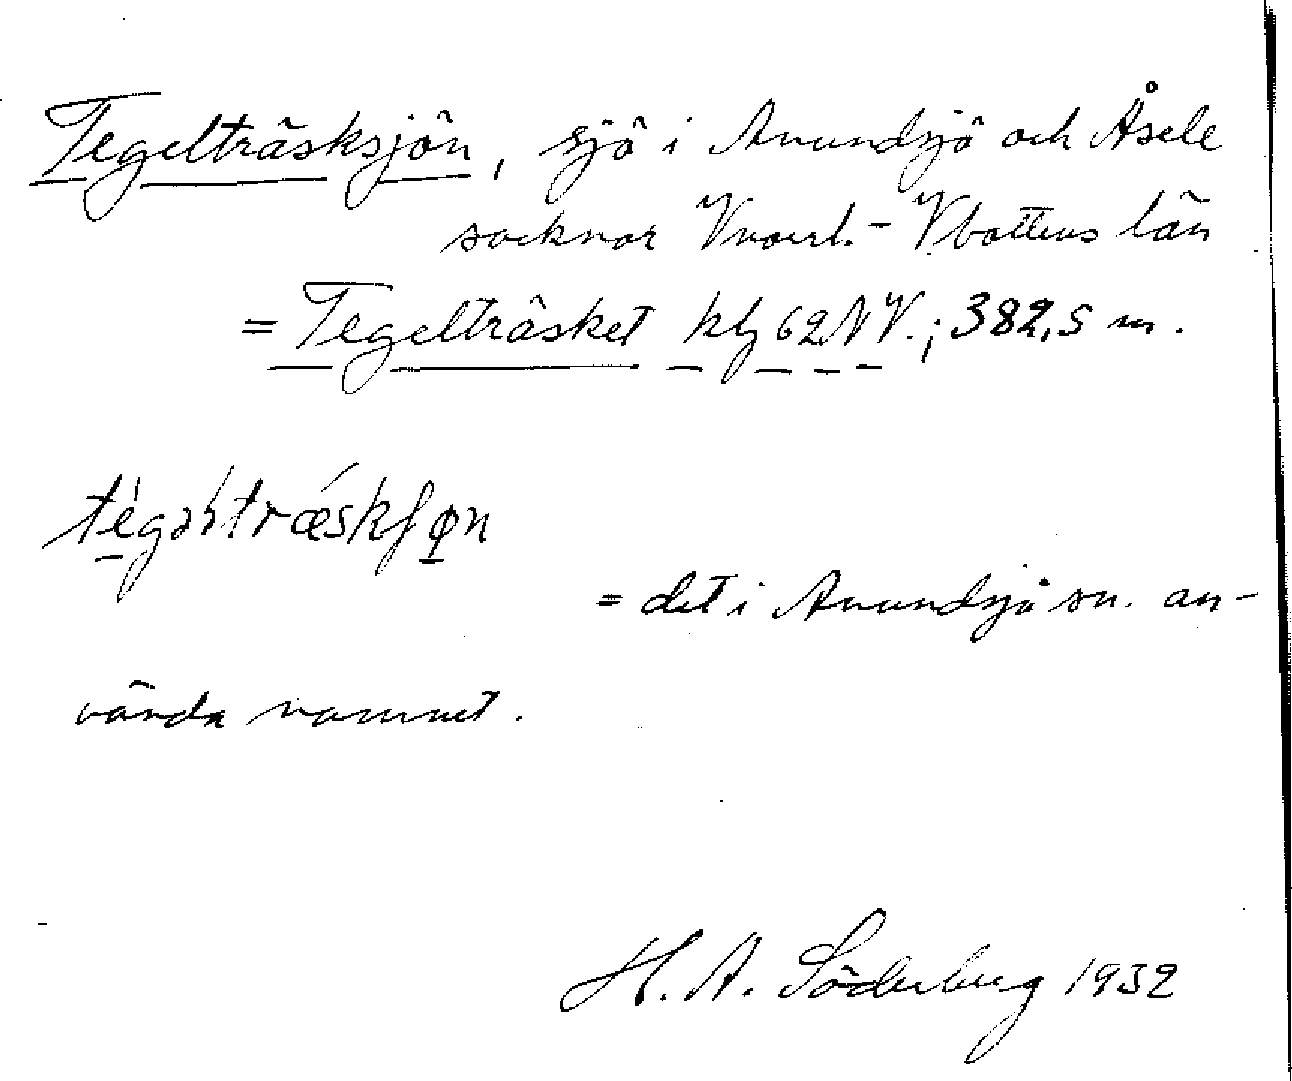 Tegelträsksjön, sjö i Anundsjö och Åsele
socknar Vnorrl.- Vbottens län
= Tegelträsket kbl 62 NV.; 382,5 m.
tegəltræskʃøn
= det i Anundsjö sn. an-
vända namnet.
H. A. Söderberg 1932